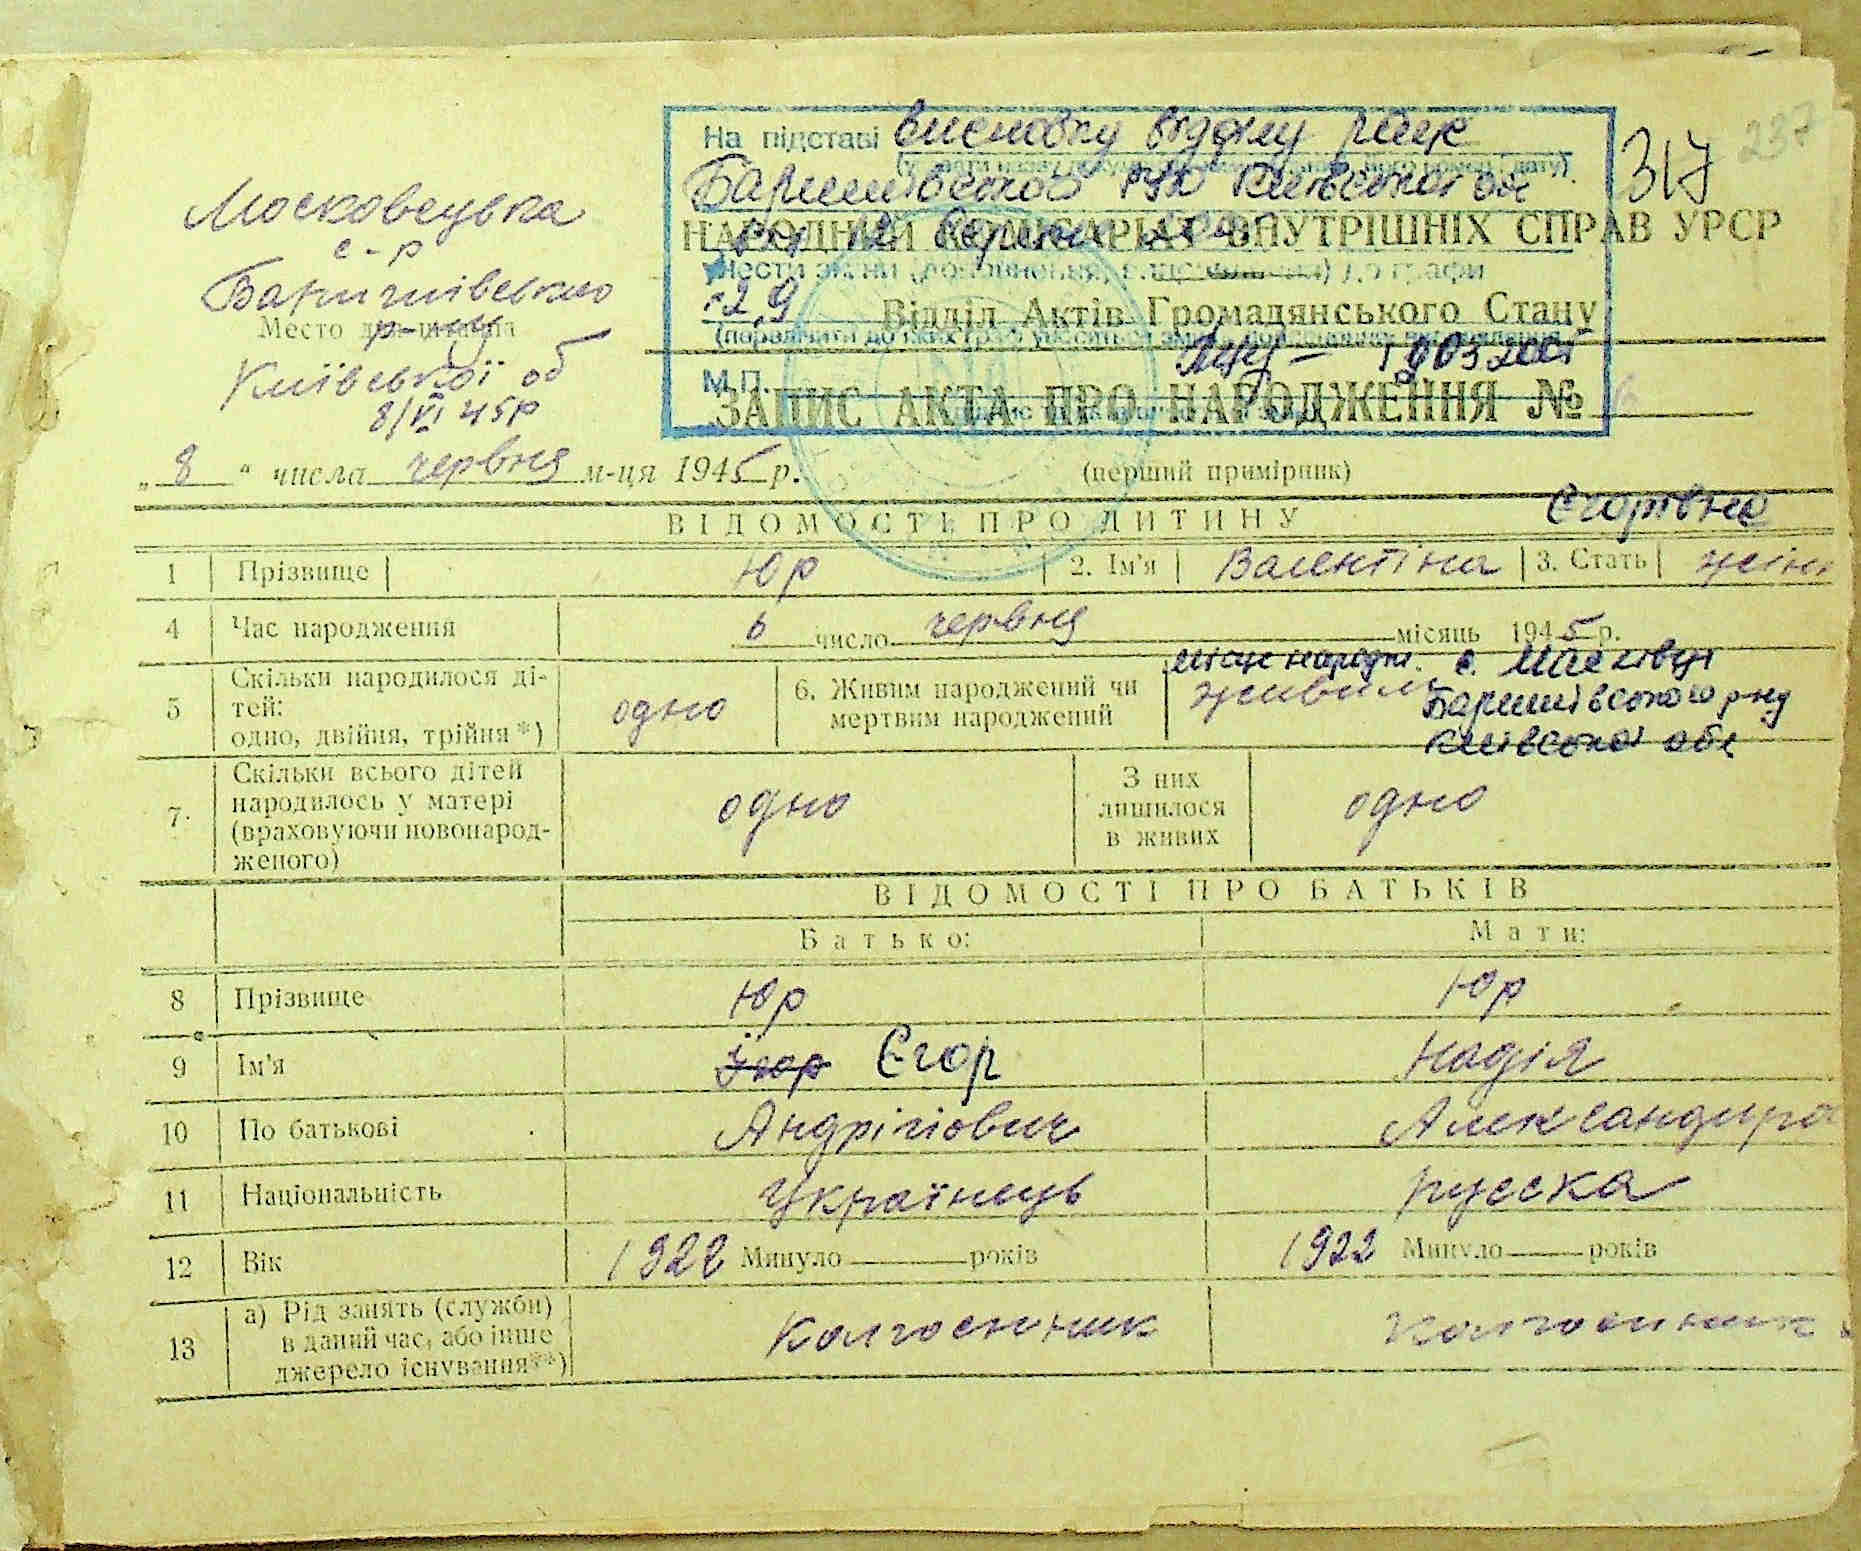 На підставі висновку відділу рацс
Баришівського РУЮ Київської обл
317
237
Московецька
с-р
НАРОДНИЙ КОМІСАРІАТ ВНУТРІШНІХ СПРАВ УРСР
Баришівського
р-ну
внести зміни (доповнення, ) до графи
2,9
Відділ Актів Громадянського Стану
Место для штампа
Київської об
8/VI 45р
М.П.
ЗАПИС АКТА ПРО НАРОДЖЕННЯ № 6
„ 8 “ числа червня м-ця 1945 р.
(перший примірник)
ВІДОМОСТІ ПРО ДИТИНУ
Єгорівна
1 Прізвище Юр 2. Ім'я Валентіна 3. Стать жін
4 Час народження 6 число червня місяць 1945 р.
Місце народж. с. Масківці
Баришівського р-ну
Київської обл
5 Скільки народилося ді-
тей:
одно, двійня, трійня*)
одно
6. Живим народжений чи
мертвим народжений
живим
7. Скільки всього дітей
народилось у матері
(враховуючи новонарод-
женого)
одно
З них
лишилося
в живих
одно
ВІДОМОСТІ ПРО БАТЬКІВ
Батько: Мати:
8 Прізвище Юр Юр
9 Ім'я Єгор Надія
10 По батькові Андрігіович Александира
11 Національність Українець русска
12 Вік 1922 Минуло років 1922 Минуло років
13 а) Рід занять (служби)
в даний час, або інше
джерело існування**)
Колгоспник колгоспник